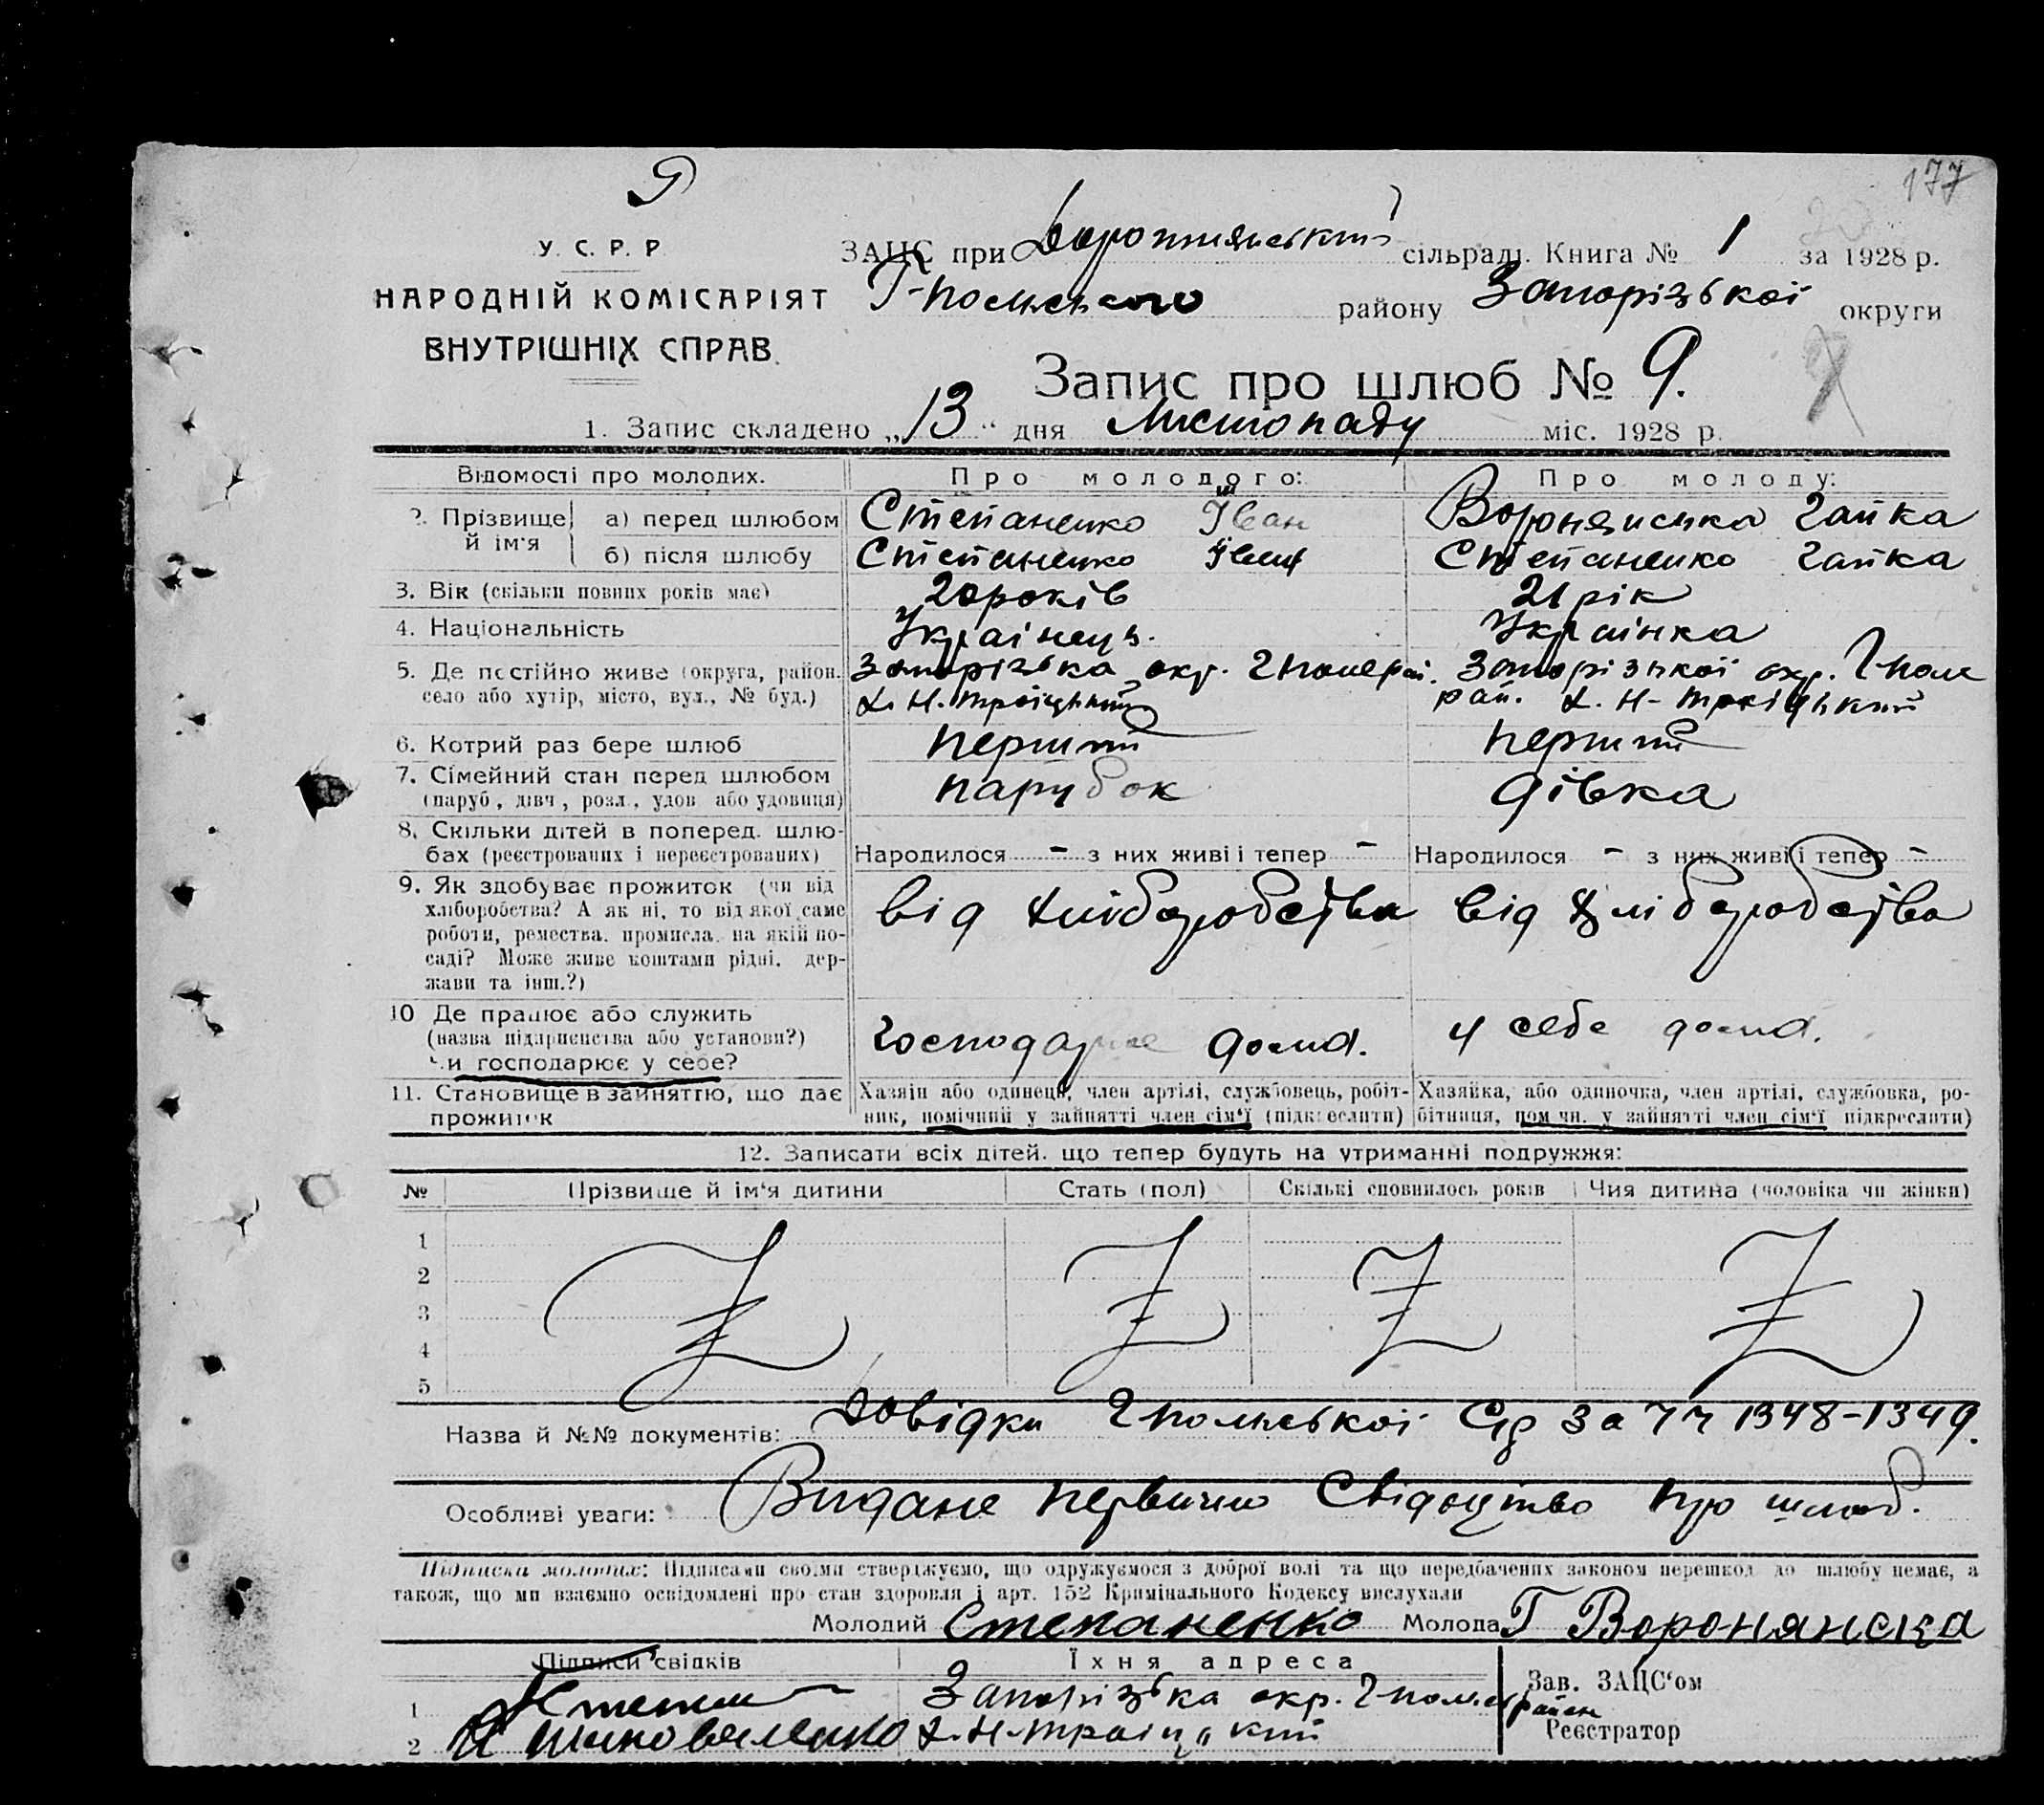 177
У. С. Р. Р.
НАРОДНІЙ КОМІСАРІЯТ
ВНУТРІШНІХ СПРАВ.
ЗАЦС при сільраді. Книга № 1 за 1928 р.
району Запорізької округи
Запис про шлюб № 9.
1. Запис складено „13“ дня Листопаду міс. 1928 р.
Відомості про молодих. Про молодого: Про молоду:
2. Прізвище й ім'я а) перед шлюбом Степаненко Іван Воронянська Галка
б) після шлюбу Степаненко Іван Степаненко Галка
3. Вік (скільки повних років має) 20 років 21 рік
4. Національність Українець. Українка
5. Де постійно живе (округа, район, Запорізька окр. Гполе рай. Запорізької окр. Гполе
село або хутір, місто, вул., № буд.) х. Н. Троїцький рай. х. Н-Троїцький
6. Котрий раз бере шлюб перший перший
7. Сімейний стан перед шлюбом парубок дівка
(паруб., дівч., розл., удов. або удовиця)
8. Скільки дітей в поперед. шлю-
бах (реєстрованих і нереєстрованих) Народилося - з них живі і тепер - Народилося - з них живі і тепер -
9. Як здобуває прожиток (чи від від хліборобства від хліборобства
хліборобства? А як ні, то від якої саме
роботи, ремества, промисла, на якій по-
саді? Може живе коштами рідні, дер-
жави та інш.?)
10 Де працює або служить
(назва підприємства або установи?) господарює дома. у себе дома.
чи господарює у себе?
11. Становище в зайняттю, що дає Хазяїн або одинець, член артілі, службовець, робіт- Хазяйка, або одиночка, член артілі, службовка, ро-
прожиток ник, помічний у зайнятті член сім'ї (підкреслити) бітниця, помічн. у зайнятті член сім'ї підкреслити)
12. Записати всіх дітей, що тепер будуть на утриманні подружжя:
№ Прізвище й ім'я дитини Стать (пол) Скількі сповнилось років Чия дитина (чоловіка чи жінки)
1
2
3
4
5
Назва й №№ документів: Довідки Гпольської С/р за 1348-1349.
Особливі уваги: Видане первичне Свідоцтво про шлюб.
Підписка молодих: Підписами своїми стверджуємо, що одружуємося з доброї волі та що передбачених законом перешкод до шлюбу немає, а
також, що ми взаємно освідомлені про стан здоровля і арт. 152 Кримінального Кодексу вислухали
Молодий Степаненко Молода Г Воронянска
Підписи свідків Їхня адреса Зав. ЗАЦС'ом
1 Запорізька окр. Гполе район
2 х. Н-Троїцький Реєстратор